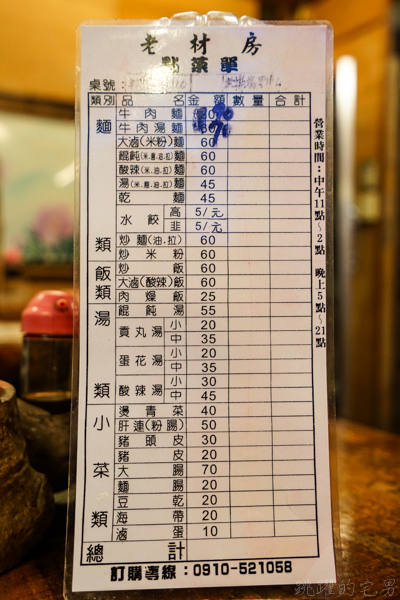 老材房
點菜單
桌號:
類別 品名 金額 數量 合計
麵類
牛肉麵
牛肉湯麵 60
大滷(米粉)麵 60
餛飩(米.麵.油.拉)麵 60
酸辣(米.油.拉)麵 60
湯(米.麵.油.拉)麵 45
乾麵 45
水餃 高 5/元
韭 5/元
炒麵(油.拉) 60
炒米粉 60
飯類
炒飯 60
大滷(酸辣)飯 60
肉燥飯 25
湯類
餛飩湯 55
貢丸湯 小 20
中 35
蛋花湯 小 20
中 35
酸辣湯 小 30
中 45
小菜類
燙青菜 40
肝連(粉腸) 50
豬頭皮 30
豬皮 20
大腸 70
麵腸 20
豆乾 20
海帶 20
滷蛋 10
總計
訂購專線:0910-521058
營業時間:中午11點~2點 晚上5點~21點
跳躍的宅男